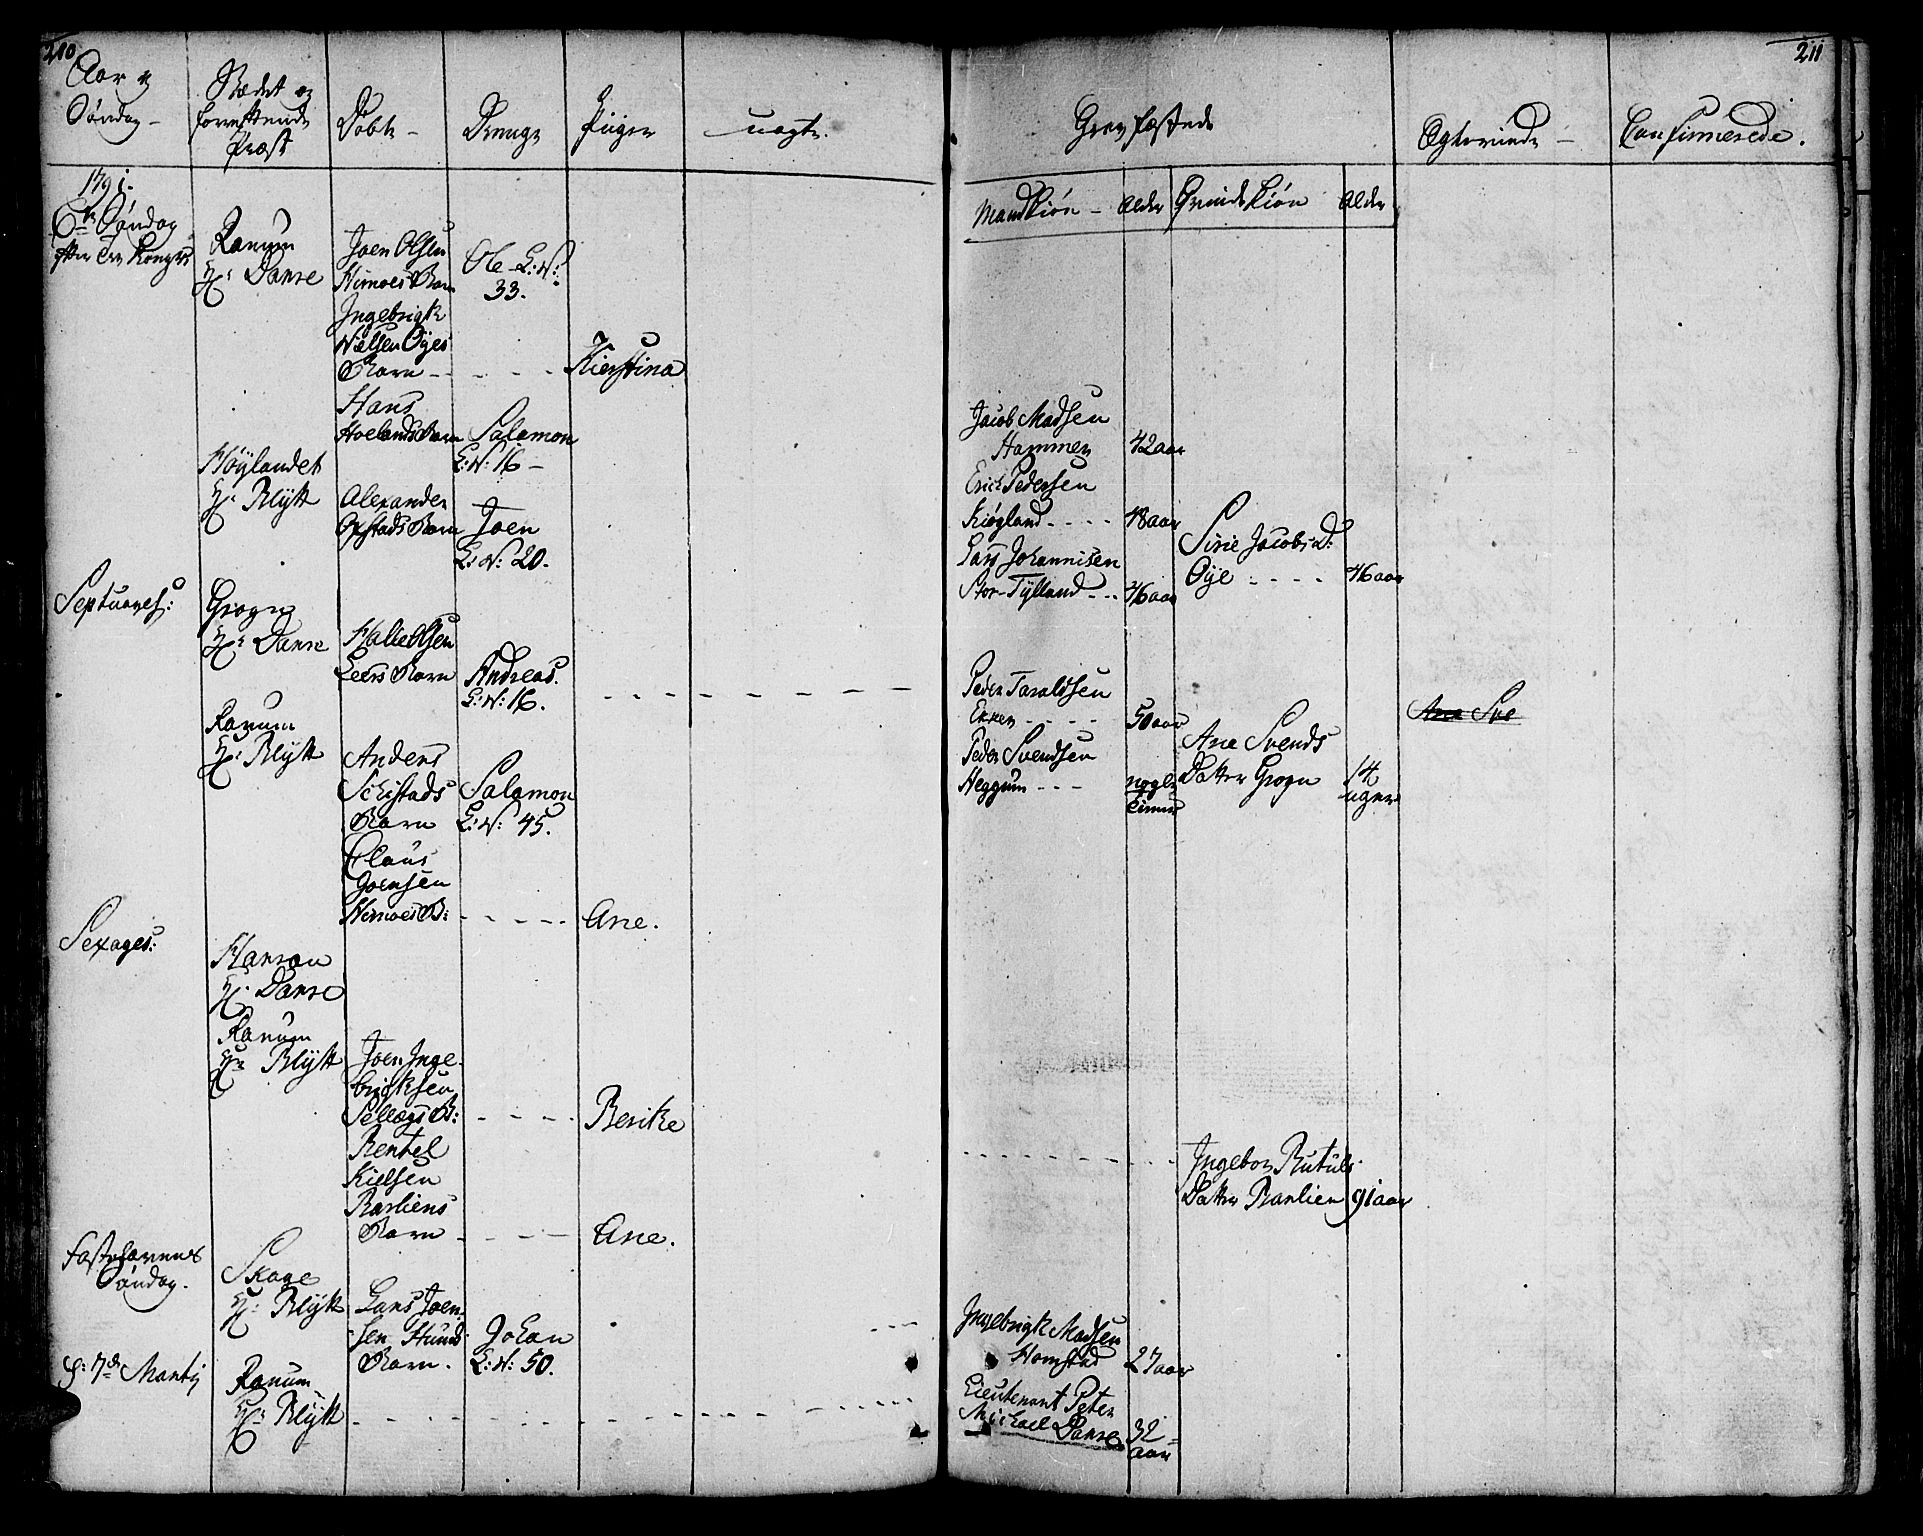 210
Aar og
Søndag –
Stædet og
forrettende
Præst
Døbte –
Drenge
Piiger
uægte.
1791.
6te Søndag
efter Tre Konger
Ranum
Hr Danse
Joen Olsen
Himoes Barn
Ole L: N:
33.
Ingebrigt
Nielsen Øyes
Barn – – – –
Kierstina
Hans
Hoelands Barn
Salamon
L: N: 16 –
Høylandet
Hr Blÿtt
Alexander
Opstads Barn
Joen
L: N: 20.
Septuages:
Grogn
Hr Danse
Halle Olsen
Leers Barn
Andreas.
L: N: 16.
Ranum
Hr Blÿtt
Anders
Schistads
Barn
Salamon
L: N: 45.
Claus
Joensen
Himoes B: – – – –
Ane.
Sexages:
Harran
Hr Danse
Ranum
Hr Blÿtt
Joen Inge-
brigtsen
Sellægs B: – – – –
Berite
Bentel
Kielsen
Barliens
Barn – – – –
Ane.
Fastelavens
Søndag.
Skage
Hr Blÿtt
Lars Joen-
sen Hunds
Barn.
Johan
L: N: 50.
d: 17de Martij
Ranum
Hr Blÿtt
211
Gravfæstede
Ægteviede –
Confirmerede.
Mandkiøn – Alder
Qvindekiøn Alder
Jacob Madsen
Hammer 42 aar
Erich Pedersen
Kiøgland – – – – 48 aar
Lars Johannisen
Stor-Tÿlland – – – 46 aar
Sirie Jacobs D:
Øÿe – – – – 46 aar
Peder Taraldsen
Ekker – – – – 50 aar
Peder Svendsen
Heggum – – – nogle
timer
Ane Svends
Datter Grogn 14
uger
Ane Sve
Ingebor Rutuls
Datter Barlien 91 aar
Ingebrigt Madsen
Homstad 27 aar
Lieutenant Peter
Michael Danse 32
aar